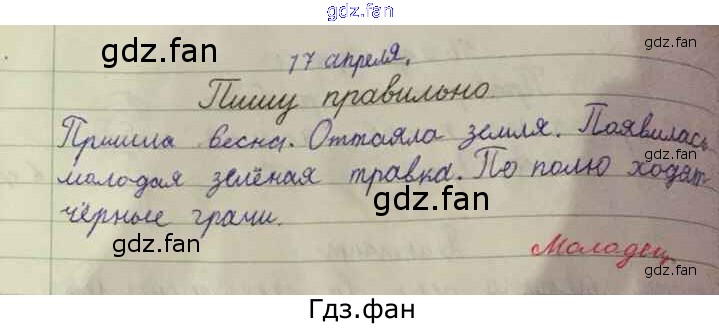 gdz.fan
gdz.fan
gdz.fan
17 апреля.
Пишу правильно.
Пришла весна. Оттаяла земля. Появилась
молодая зелёная травка. По полю ходят
чёрные грачи.
gdz.fan
gdz.fan
Молодец
gdz.fan
Гдз.фан